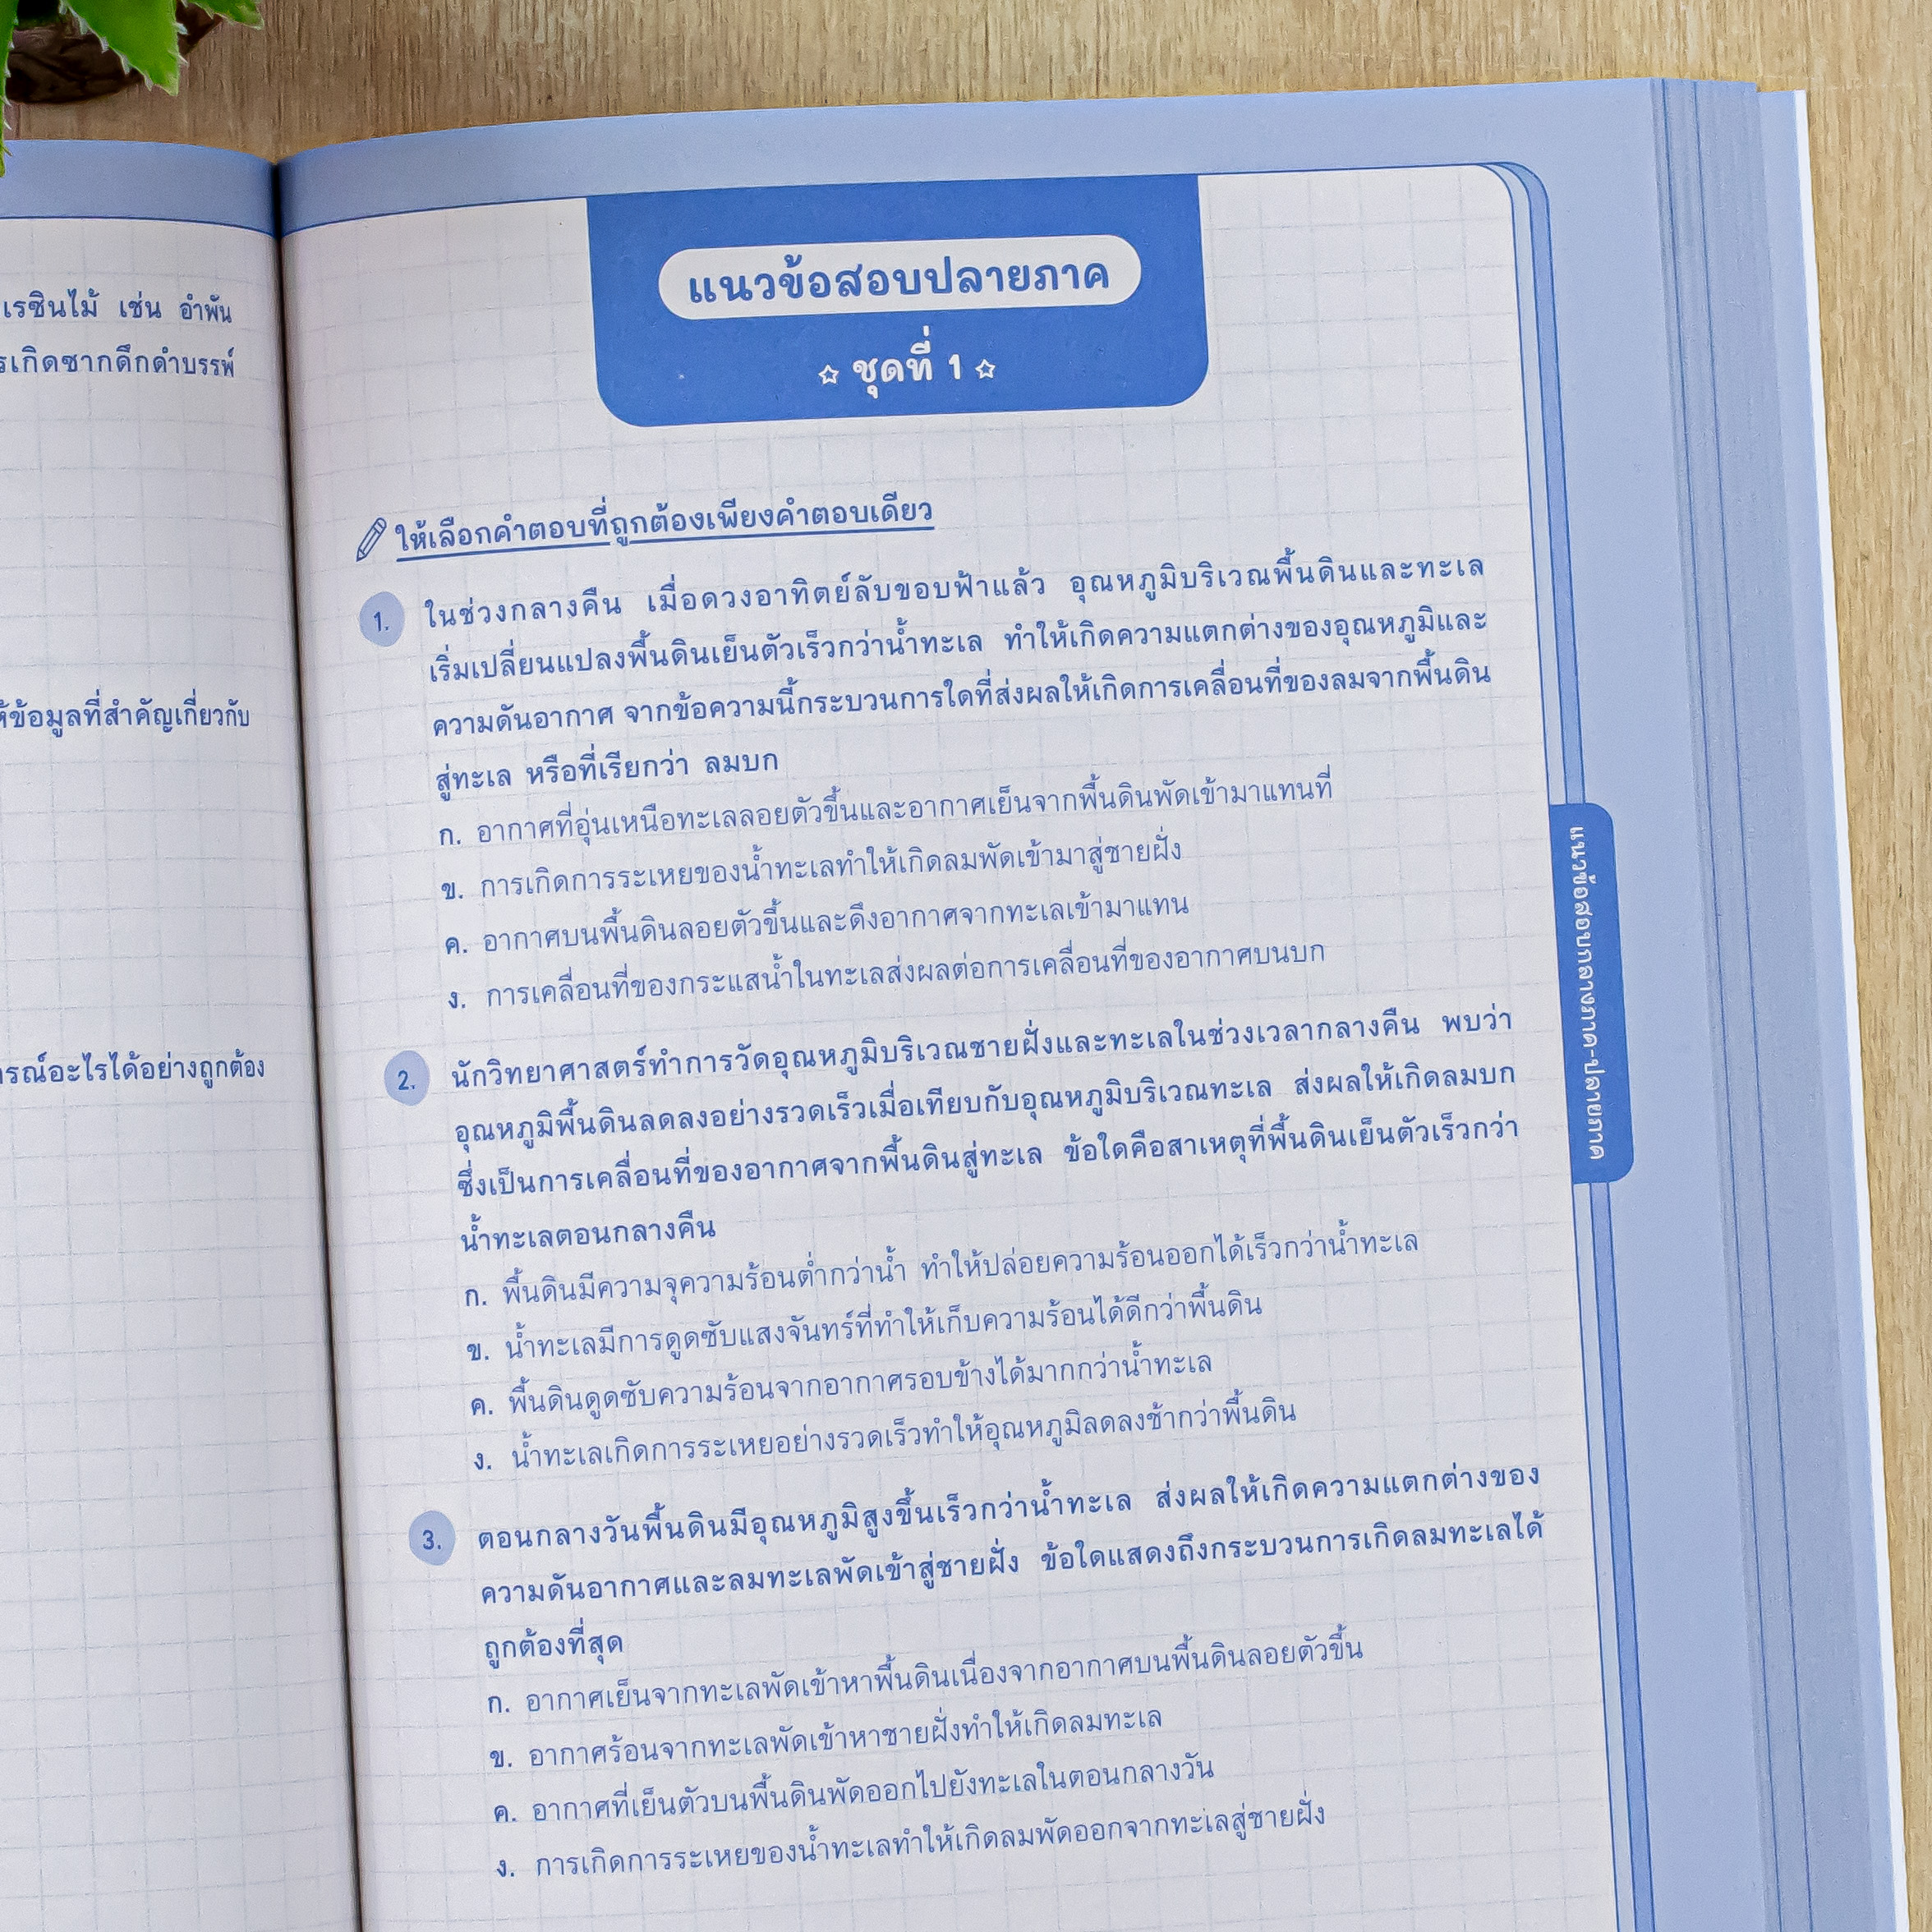 เรซินไม้ เช่น อำพัน
เกิดซากดึกดำบรรพ์
ข้อมูลที่สำคัญเกี่ยวกับ
อะไรได้อย่างถูกต้อง
แนวข้อสอบปลายภาค
☆ ชุดที่ 1 ☆
ให้เลือกคำตอบที่ถูกต้องเพียงคำตอบเดียว
1. ในช่วงกลางคืน เมื่อดวงอาทิตย์ลับขอบฟ้าแล้ว อุณหภูมิบริเวณพื้นดินและทะเล
เริ่มเปลี่ยนแปลงพื้นดินเย็นตัวเร็วกว่าน้ำทะเล ทำให้เกิดความแตกต่างของอุณหภูมิและ
ความดันอากาศ จากข้อความนี้กระบวนการใดที่ส่งผลให้เกิดการเคลื่อนที่ของลมจากพื้นดิน
สู่ทะเล หรือที่เรียกว่า ลมบก
ก. อากาศที่อุ่นเหนือทะเลลอยตัวขึ้นและอากาศเย็นจากพื้นดินพัดเข้ามาแทนที่
ข. การเกิดการระเหยของน้ำทะเลทำให้เกิดลมพัดเข้ามาสู่ชายฝั่ง
ค. อากาศบนพื้นดินลอยตัวขึ้นและดึงอากาศจากทะเลเข้ามาแทน
ง. การเคลื่อนที่ของกระแสน้ำในทะเลส่งผลต่อการเคลื่อนที่ของอากาศบนบก
2. นักวิทยาศาสตร์ทำการวัดอุณหภูมิบริเวณชายฝั่งและทะเลในช่วงเวลากลางคืน พบว่า
อุณหภูมิพื้นดินลดลงอย่างรวดเร็วเมื่อเทียบกับอุณหภูมิบริเวณทะเล ส่งผลให้เกิดลมบก
ซึ่งเป็นการเคลื่อนที่ของอากาศจากพื้นดินสู่ทะเล ข้อใดคือสาเหตุที่พื้นดินเย็นตัวเร็วกว่า
น้ำทะเลตอนกลางคืน
ก. พื้นดินมีความจุความร้อนต่ำกว่าน้ำ ทำให้ปล่อยความร้อนออกได้เร็วกว่าน้ำทะเล
ข. น้ำทะเลมีการดูดซับแสงจันทร์ที่ทำให้เก็บความร้อนได้ดีกว่าพื้นดิน
ค. พื้นดินดูดซับความร้อนจากอากาศรอบข้างได้มากกว่าน้ำทะเล
ง. น้ำทะเลเกิดการระเหยอย่างรวดเร็วทำให้อุณหภูมิลดลงช้ากว่าพื้นดิน
3. ตอนกลางวันพื้นดินมีอุณหภูมิสูงขึ้นเร็วกว่าน้ำทะเล ส่งผลให้เกิดความแตกต่างของ
ความดันอากาศและลมทะเลพัดเข้าสู่ชายฝั่ง ข้อใดแสดงถึงกระบวนการเกิดลมทะเลได้
ถูกต้องที่สุด
ก. อากาศเย็นจากทะเลพัดเข้าหาพื้นดินเนื่องจากอากาศบนพื้นดินลอยตัวขึ้น
ข. อากาศร้อนจากทะเลพัดเข้าหาชายฝั่งทำให้เกิดลมทะเล
ค. อากาศที่เย็นตัวบนพื้นดินพัดออกไปยังทะเลในตอนกลางวัน
ง. การเกิดการระเหยของน้ำทะเลทำให้เกิดลมพัดออกจากทะเลสู่ชายฝั่ง
แนวข้อสอบกลางภาค-ปลายภาค